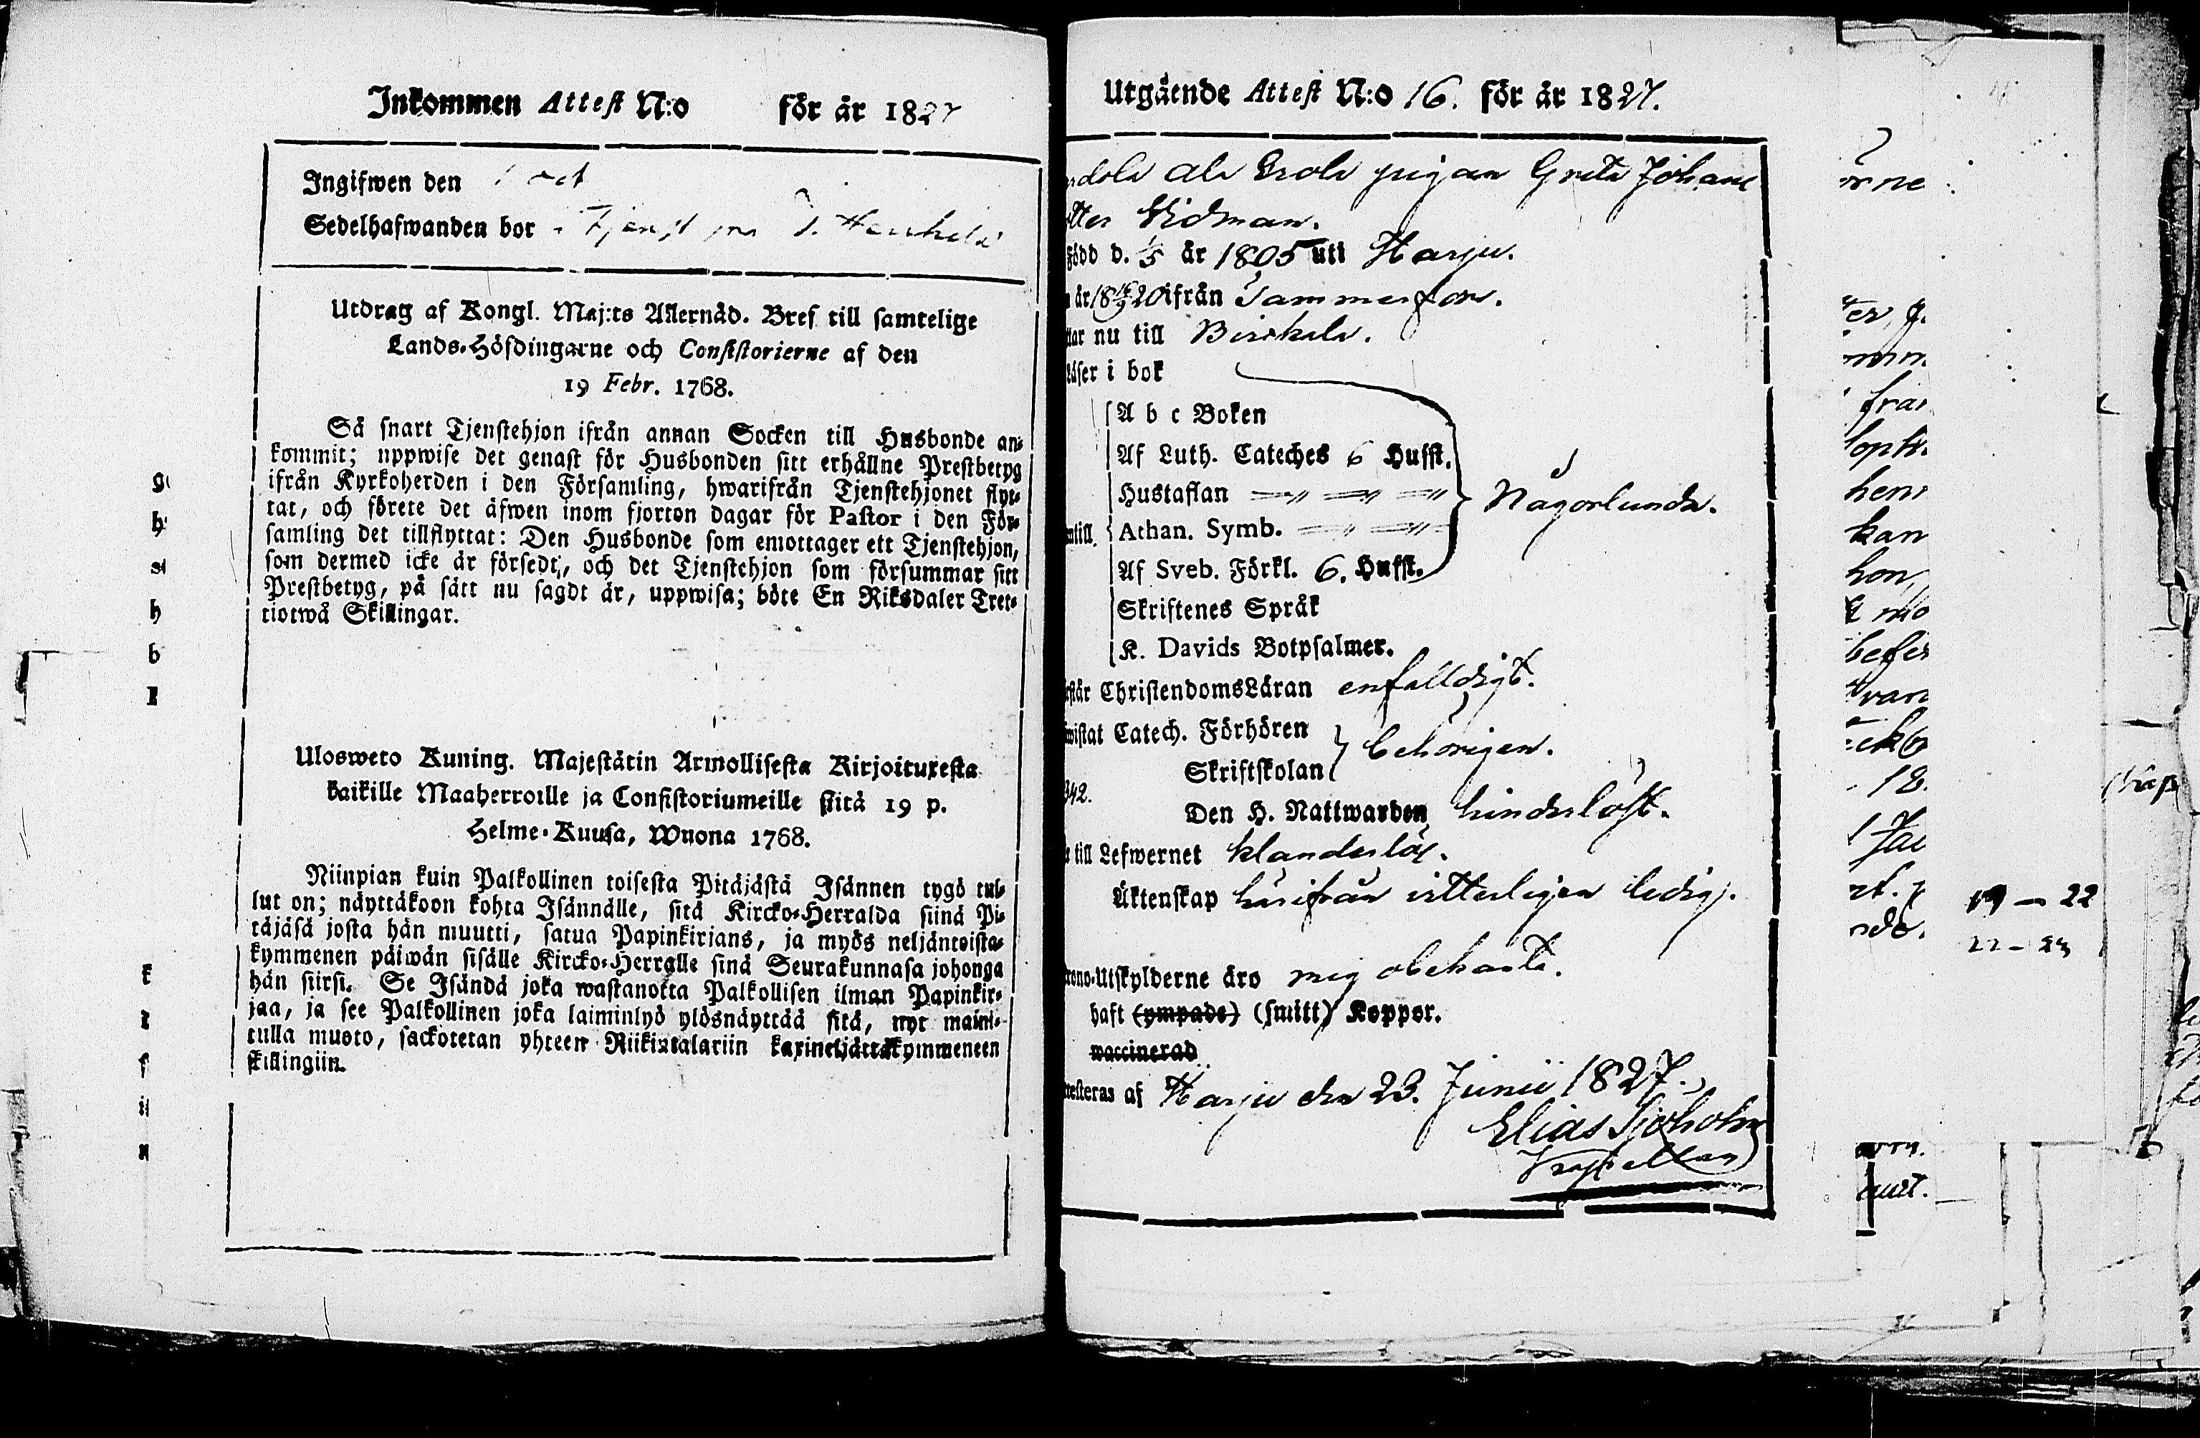 Inkommen Attest N:o för år 1827
Ingifwen den 1 oct
Sedelhafwanden bor i Tjenst
Utdrag af Kongl. Maj:ts Allernåd. Bref till samtelige
Lands-Höfdingarne och Consistorierne af den
19 Febr. 1768.
Så snart Tjenstehjon ifrån annan Socken till Husbonde an-
kommit; uppwise det genast för Husbonden sitt erhållne Prestbetyg
ifrån Kyrkoherden i den Församling, hwarifrån Tjenstehjonet flyt-
tat, och förete det äfwen inom fjorton dagar för Pastor i den För-
samling det tillflyttat: Den Husbonde som emottager ett Tjenstehjon,
som dermed icke är försedt, och det Tjenstehjon som försummar sitt
Prestbetyg, på sätt nu sagdt är, uppwisa; böte En Riksdaler Tret-
tiotwå Skillingar.
Ulosweto Kuning. Majestätin Armollisesta Kirjoituxesta
kaikille Maaherroille ja Consistoriumeille siitä 19 p.
Helme-Kuusa, Wuona 1768.
Niinpian kuin Palkollinen toisesta Pitäjästä Isännen tygö tul-
lut on; näyttäkoon kohta Isännälle, sitä Kircko-Herralda siinä Pi-
täjäsä josta hän muutti, satua Papinkirjans, ja myös neljäntoista-
kymmenen päiwän sisälle Kircko-Herralle sinä Seurakunnasa johonga
hän siirsi. Se Isändä joka wastanotta Palkollisen ilman Papinkir-
jaa, ja see Palkollinen joka laiminlyö ylösnäyttää sitä, nyt maini-
tulla muoto, sackotetan yhteen Riikintalariin kaxineljättäkymmeneen
skillingiin.
Utgående Attest N:o 16. för år 1827.
pigan Greta Johans
tter Vidman.
född d. 1/5 år 1805 uti Harju.
år 1820 ifrån Tammerfors.
tar nu till Birkala.
läser i bok
A b c Boken
Af Luth. Cateches 6 Hufst.
Hustaflan —〃 —〃 —〃
Athan. Symb. —〃 —〃
Någorlunda.
Af Sveb. Förkl. 6. Hufst.
Skriftenes Språk
K. Davids Botpsalmer.
rstår ChristendomsLäran enfalldigt.
wistat Catech. Förhören
behörigen.
Skriftskolan
Den H. Nattwarden hinderlöst.
till Lefwernet klanderlös.
Äktenskap härifrån vitterligen ledig.
rono-Utskylderne äro mig obekanta.
haft (ympade) (smitt) Koppor.
waccinerad
testeras af Harju den 23. Junii 1827.
Elias Sjöholm
Capellan
19 — 22
22 — 23